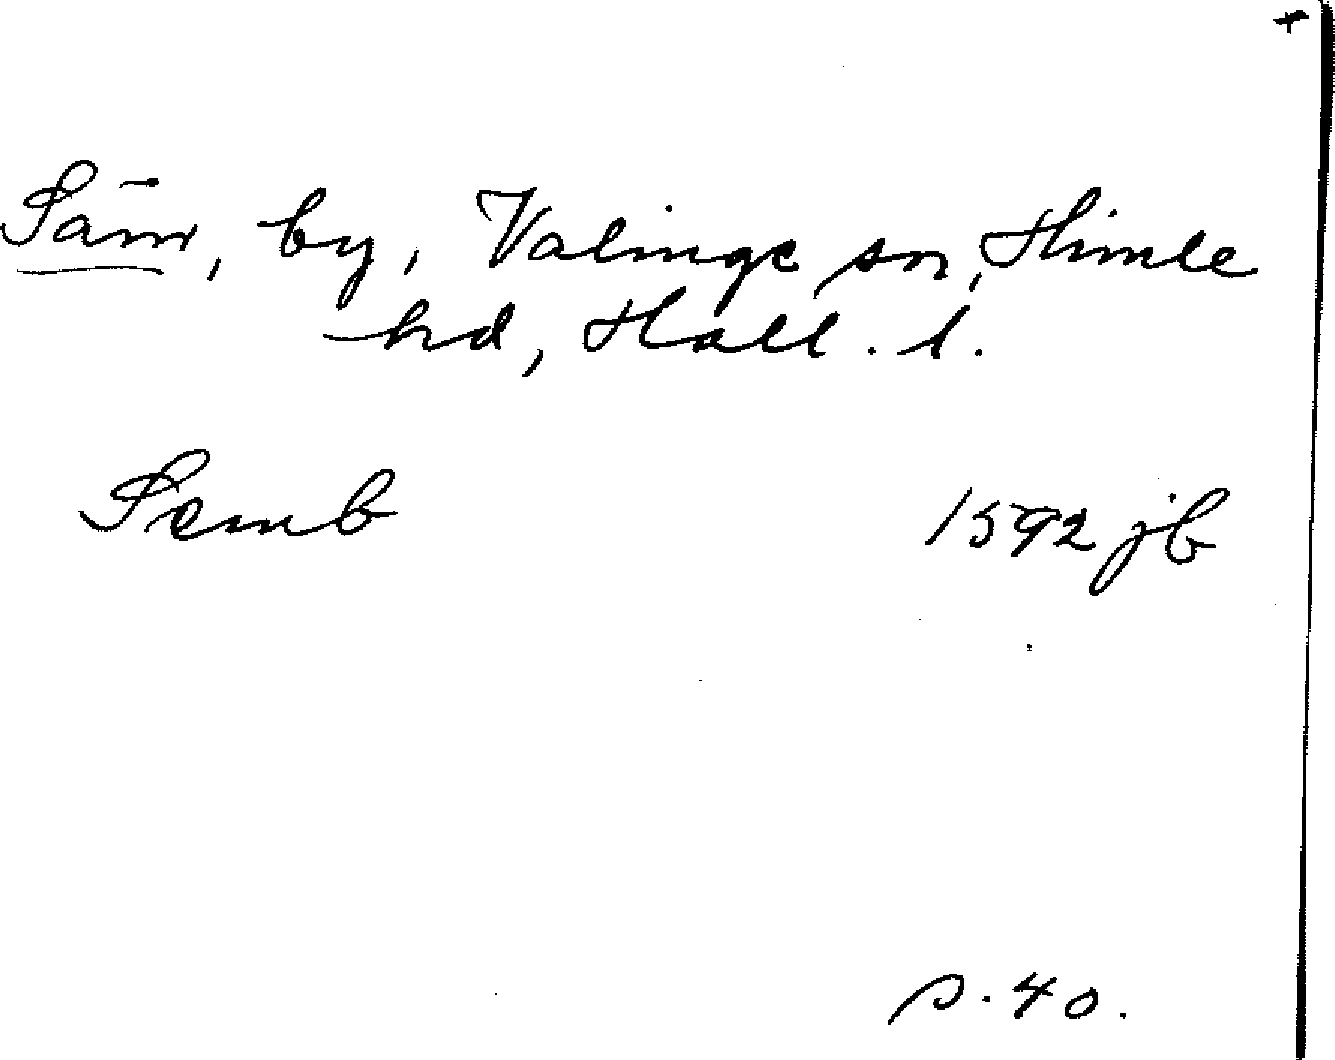 +
Säm, by, Valinge sn, Himle
hd, Hall. l.
Semb 1592 jb
s. 40.